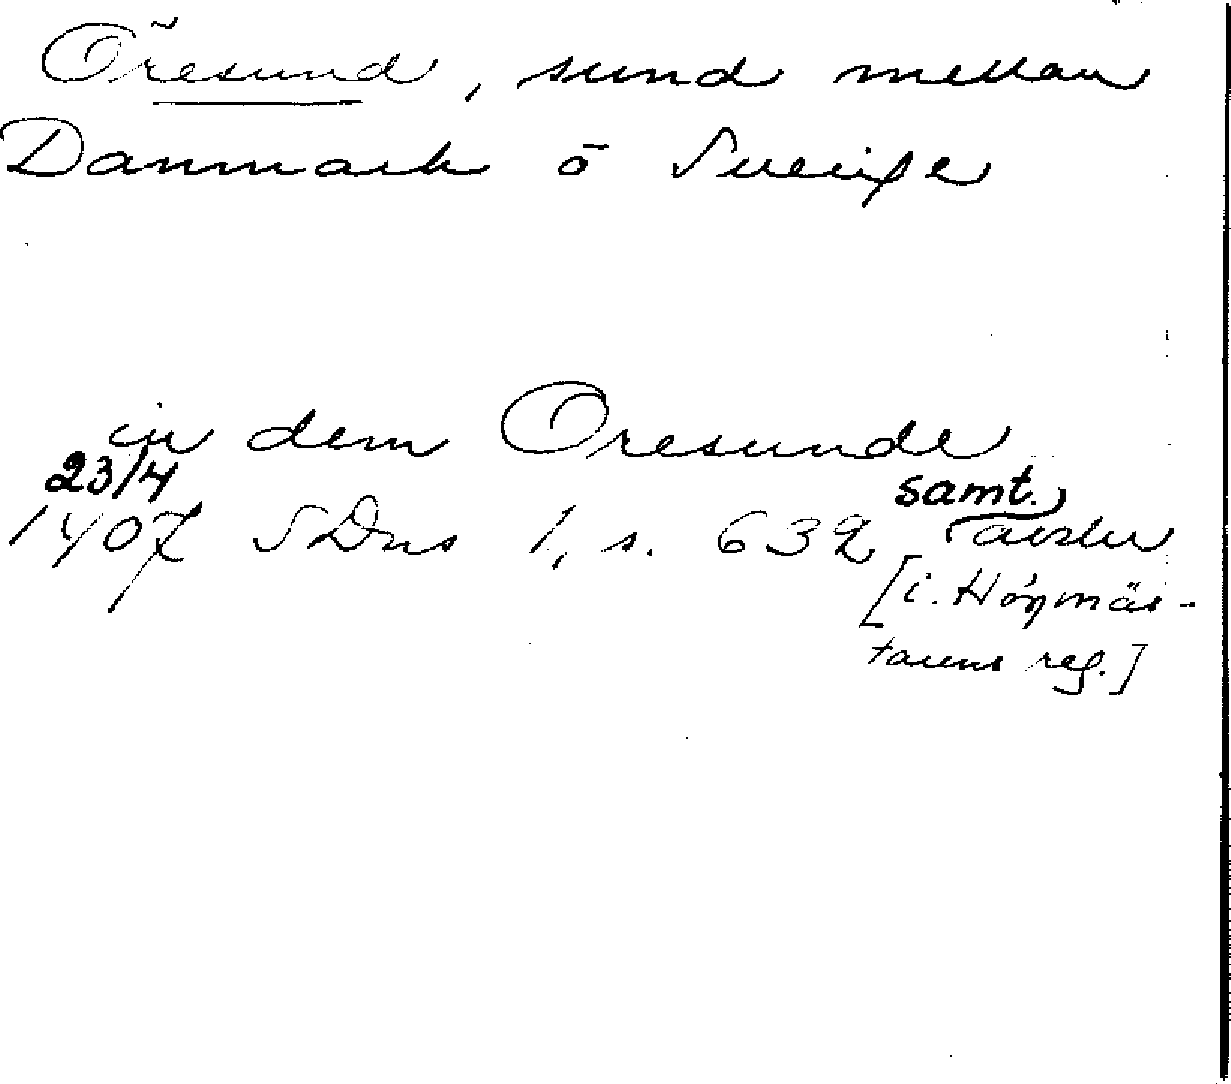 Öresund, sund mellan
Danmark o Sverige
in dem Oresunde
23/4
1407 SDns 1, s. 632 samt.
avskr
[i. Högmäs-
tarens reg.]